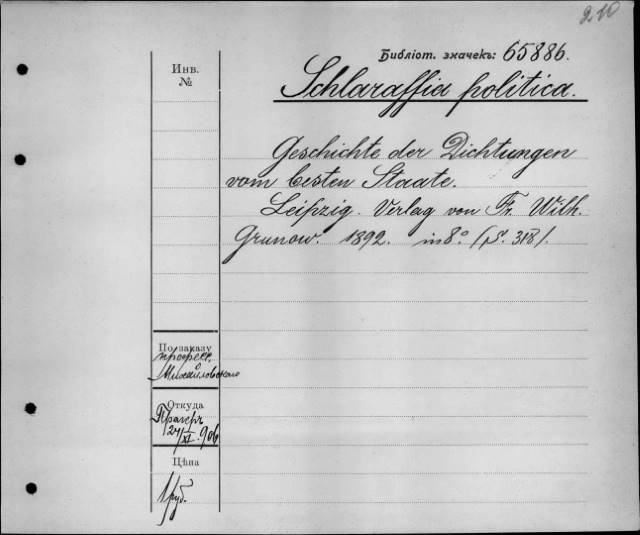 210
Библіот. значекъ: 65886.
Инв.
№
Schlaraffia politica.
Geschichte der Dichtungen
vom besten Staate.
Leipzig. Verlag von Fr. Wilh.
Grunow. 1892. in 8° (S. 318).
По заказу
професс.
Михайловскаго
Откуда
Прагеръ
24/XI 906
Цѣна
1 руб.